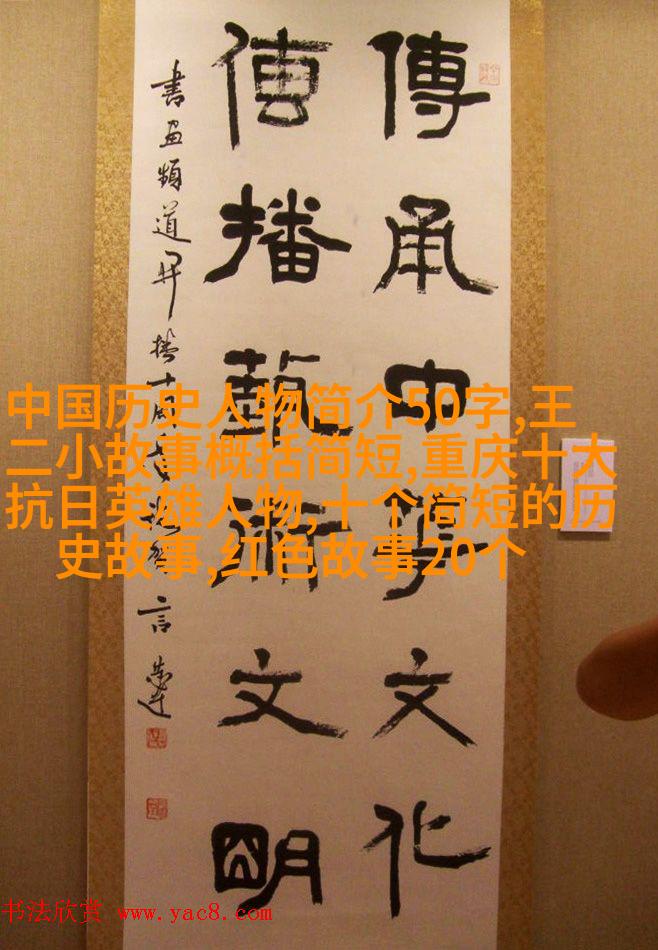 傳承中華文化
傳播藝術文明
書画頻道開播十周年
言恭達
中国历史人物简介50字,王
二小故事概括简短,重庆十大
抗日英雄人物,十个简短的历
史故事,红色故事20个
书法欣赏 www.yac8.com